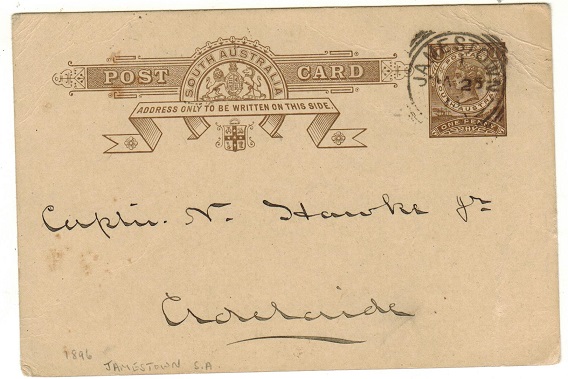 POST CARD
SOUTH AUSTRALIA
ADDRESS ONLY TO BE WRITTEN ON THIS SIDE
JAMESTOWN
25
SOUTH AUSTRALIA
ONE PENNY
Captn. N. Hawke jr
Adelaide
1896
JAMESTOWN S.A.